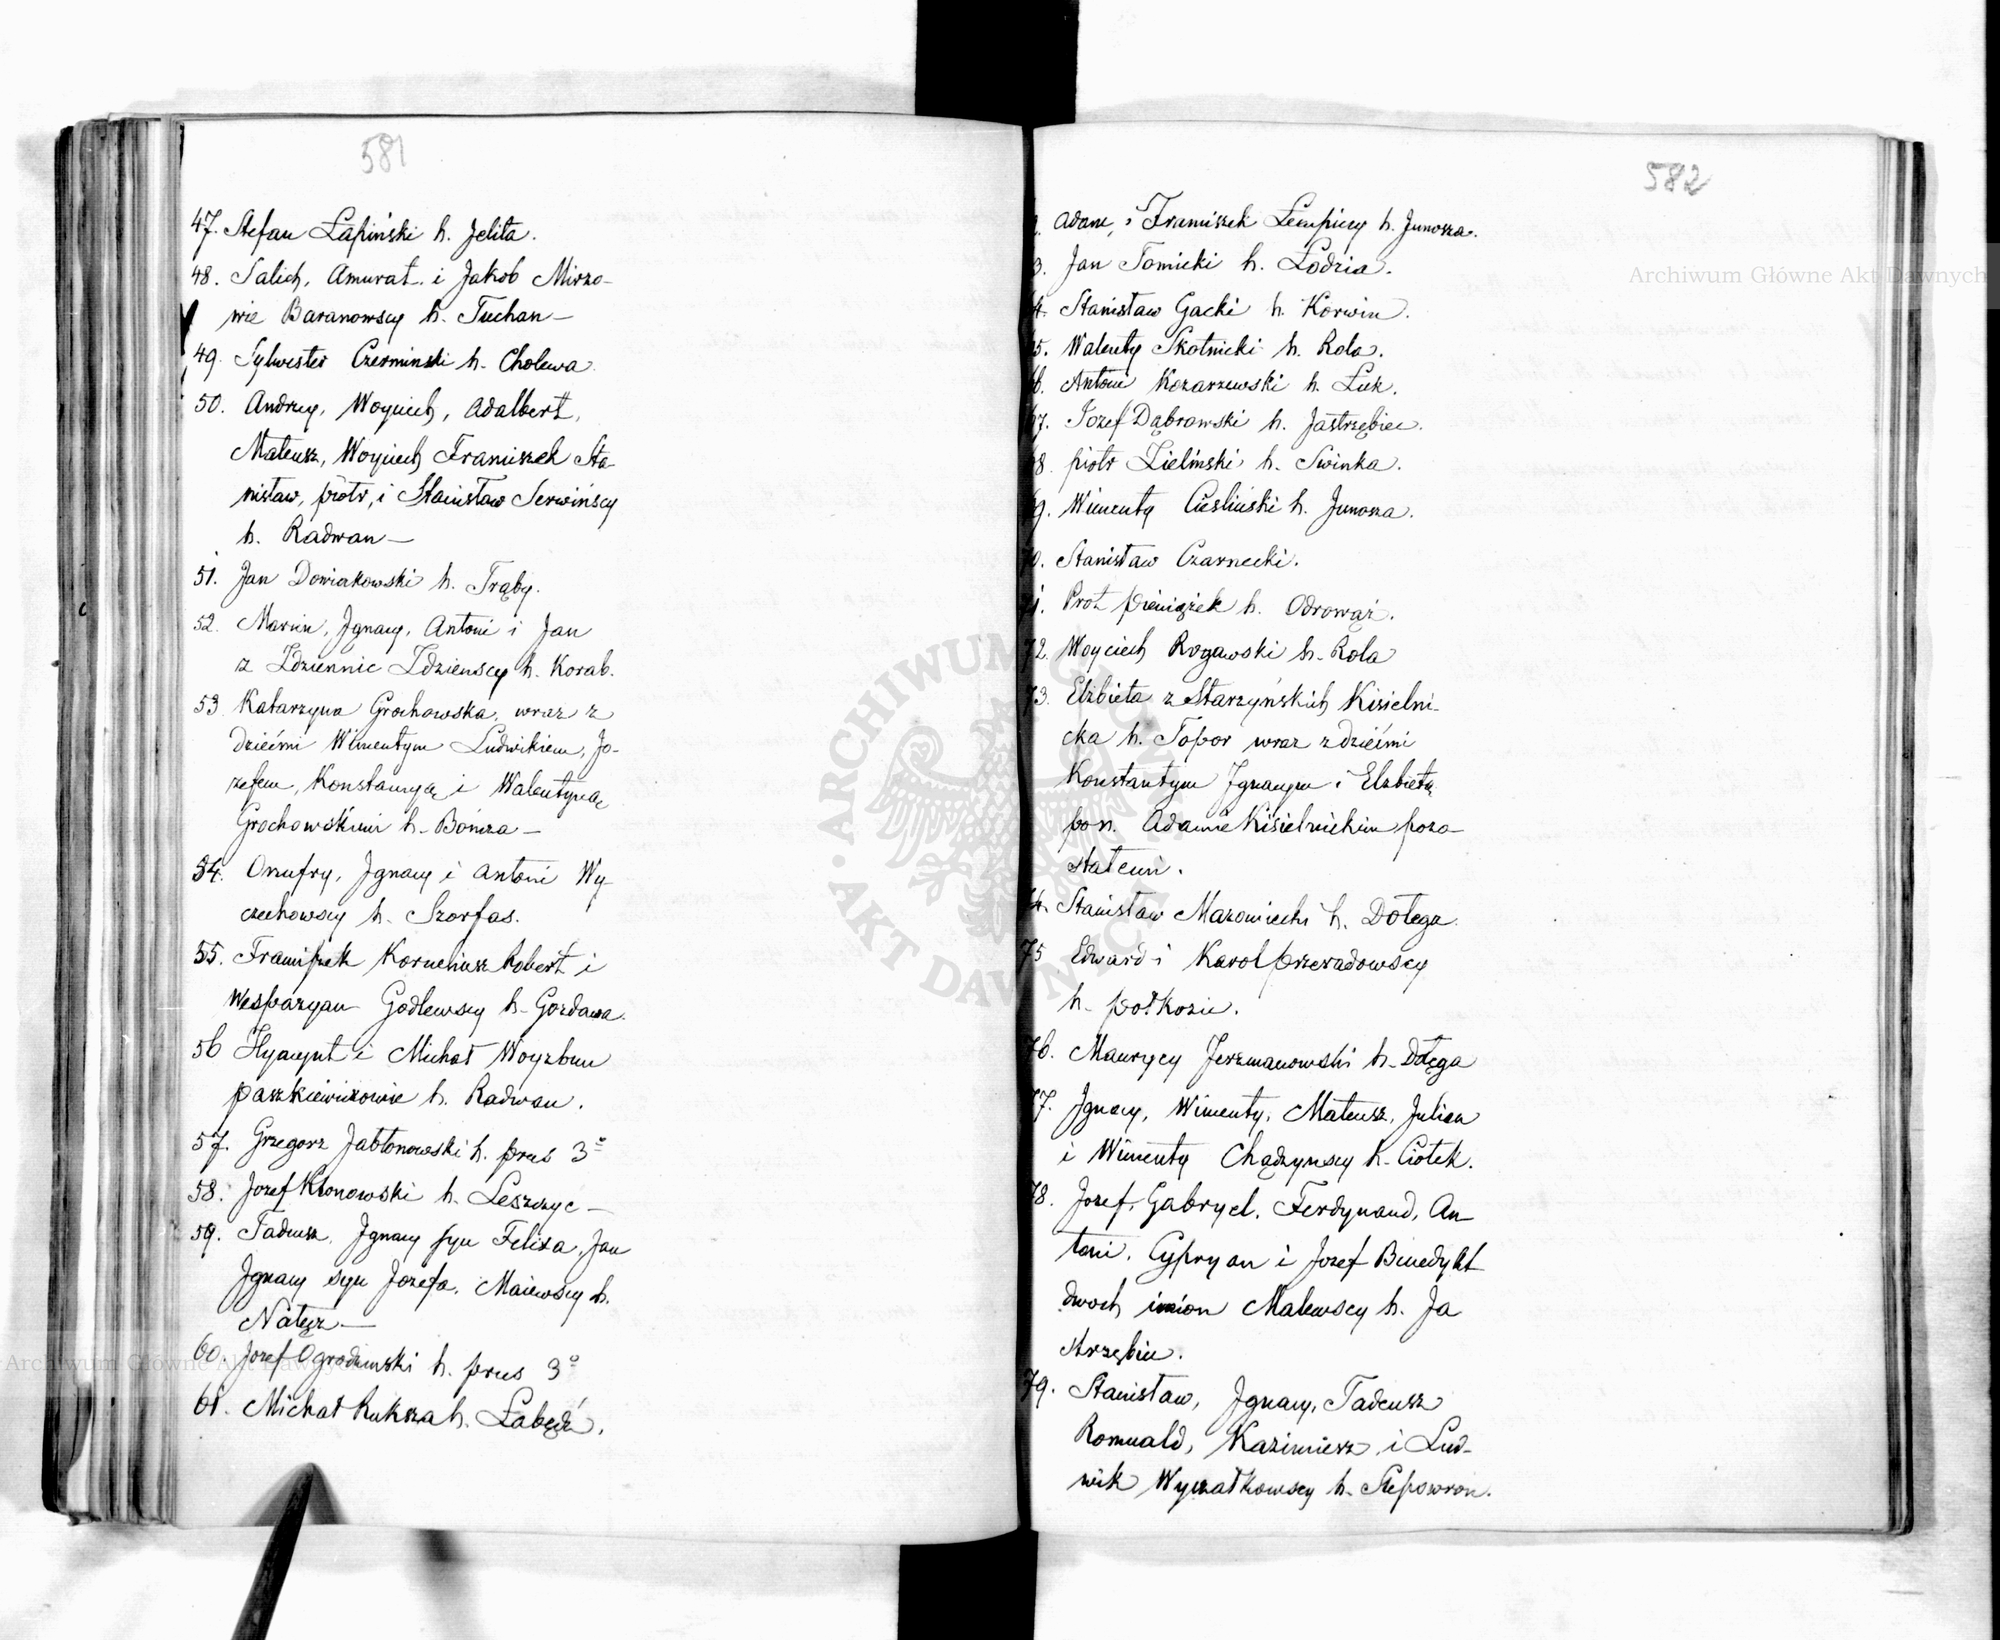 581
47. Stefan Łapiński h. Jelita.
48. Salich, Amurat. i Jakob Mirzo-
wie Baranowscy h. Tuchan—
49. Sylwester Czerminski h. Cholewa
50. Andrzey, Woyciech, Adalbert,
Mateusz, Woyciech Franciszek Sta-
nisław, Piotr, i Stanisław Serwińscy
h. Radwan—
51. Jan Dowiakowski h. Trąby.
52. Marcin, Jgnacy, Antoni i Jan
z Zdziennic Zdzienscy h. Korab.
53 Katarzyna Grochowska, wraz z
dziećmi Wincentym Ludwikiem, Jo-
zefem, Konstancyą i Walentyną
Grochowskiemi h. Bończa—
54. Onufry, Jgnacy i Antoni Wy-
czechowscy h. Szorfas.
55. Franciszek Korneliusz Robert i
Wespazyan Godlewscy h. Gozdawa.
56 Hyacynt i Michał Woyzbun
Paszkiewiczowie h. Radwan.
57. Grzegorz Jabłonowski h. Prus 3º
58. Jozef Kłonowski h. Leszczyc—
59. Tadeusz, Jgnacy syn Felixa, Jan
Jgnacy syn Jozefa, Maiewscy h.
Nałęcz—
60. Jozef Ogrodzinski h. Prus 3º
61. Michał Ruksza h. Łabędź.
582
2. Adam, i Franciszek Lempiccy h. Junosza.
3. Jan Tomicki h. Łodzia.
4. Stanisław Gacki h. Korwin.
5. Walenty Skotnicki h. Rola.
6. Antoni Kozarzewski h. Łuk.
67. Jozef Dąbrowski h. Jastrzębiec.
68. Piotr Zieliński h. Swinka.
69. Wincenty Cieśliński h. Junosza.
70. Stanisław Czarnecki.
71. Prot Pieniążek h. Odrowąż.
72. Woyciech Rogawski h. Rola
73. Elżbieta z Starzyńskich Kisielni-
cka h. Topor wraz z dziećmi
Konstantym Jgnacym i Elżbietą
po n. Adamie Kisielnickim pozo-
stałemi.
74. Stanisław Mazowiecki h. Dołęga.
75 Edward i Karol Przezadowscy
h. Połkozic.
76. Maurycy Jerzmanowski h. Dołęga
77. Jgnacy, Wincenty, Mateusz, Julian
i Wincenty Chądzynscy h. Ciołek.
78. Jozef, Gabryel, Ferdynand, An-
toni, Cypryan i Jozef Benedykt
dwoch imion Malewscy h. Ja
strzębiec.
79. Stanisław, Jgnacy, Tadeusz
Romuald, Kazimierz i Lud-
wik Wyczałkowscy h. Slepowron.
Archiwum Główne Akt Dawnych
Archiwum Główne Akt Dawnych
ARCHIWUM GŁÓWNE AKT DAWNYCH